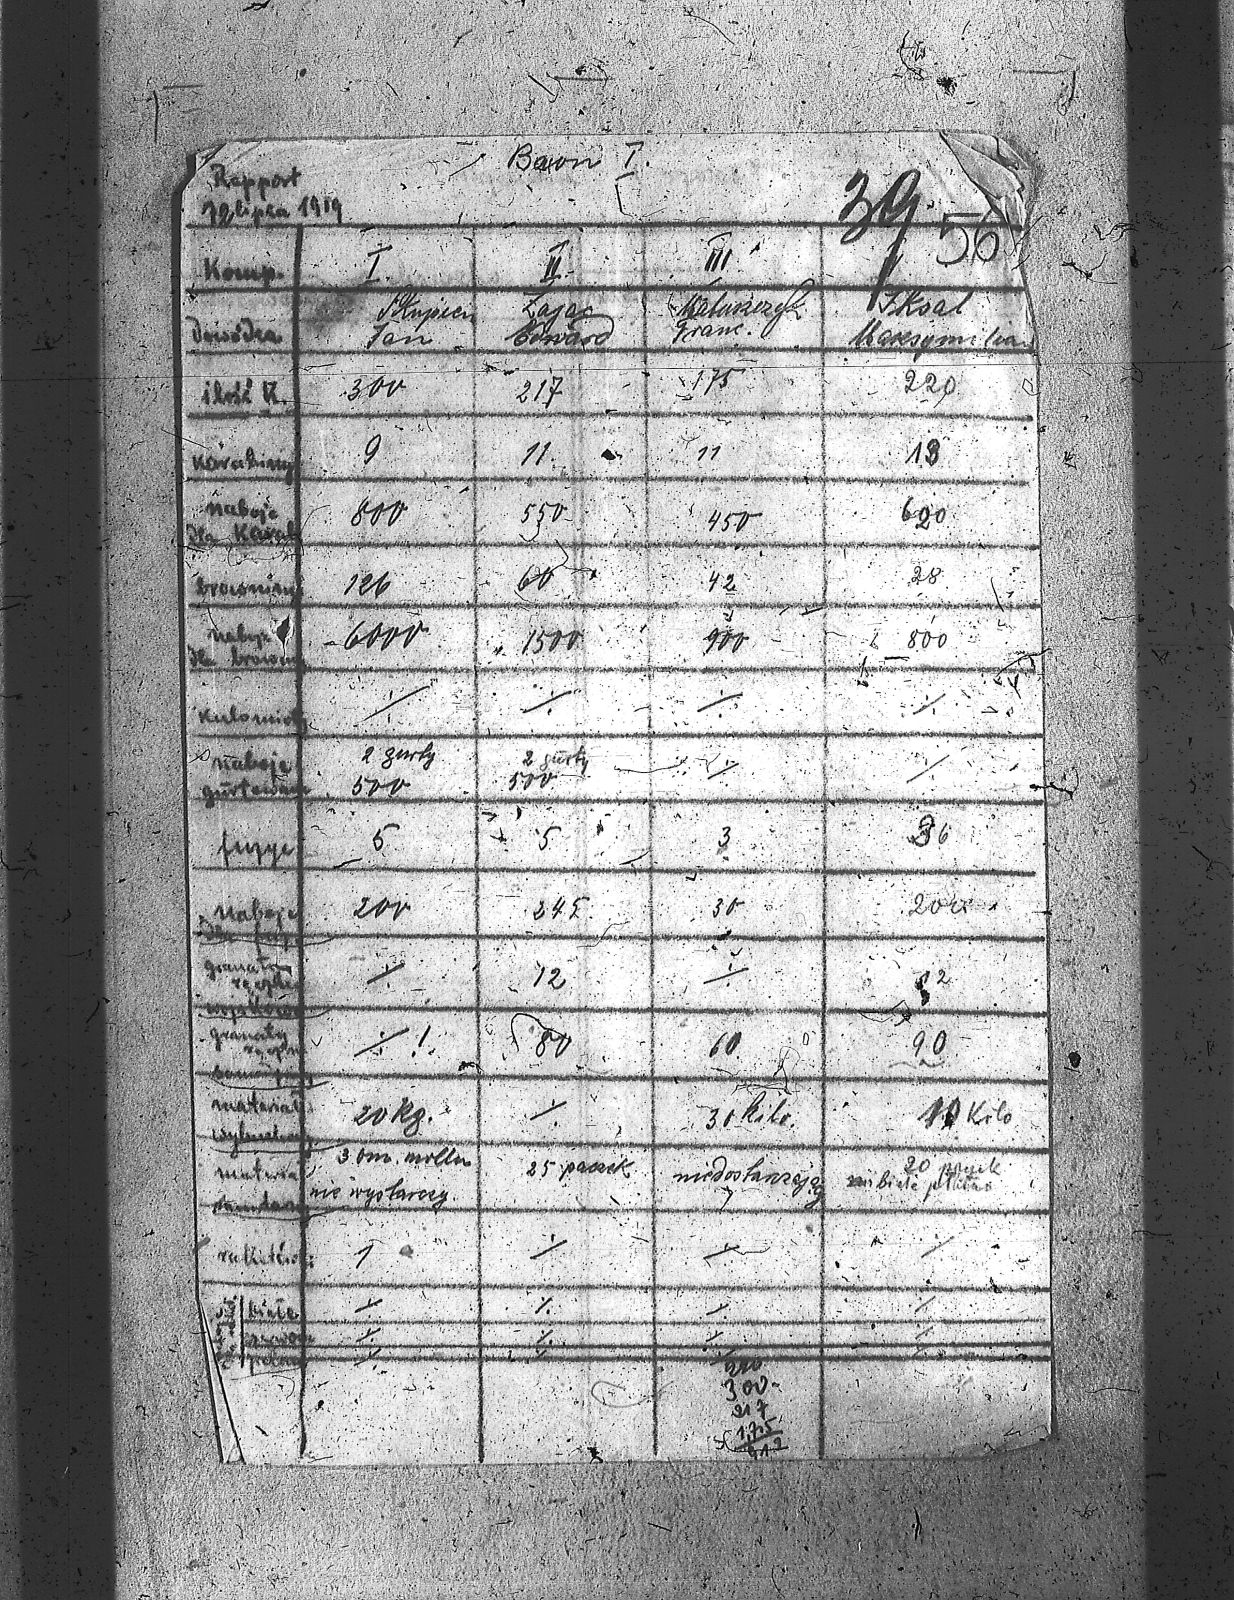 Baon I.
Rapport
12 lipca 1919
39.
56
Komp. I. II. III.
Dowódca Skupień Jan Zając Edward Franc. Maksymilian
ilość K. 300 217 175 220
karabiny 9 11. 11 13
naboje dla karab. 800 550 450 620
browningi 126 60 42 28
naboje dla browning 6000 1500 900 800
kulomioty ÷ ÷ ÷ ÷
naboje gurtowane 2 gurty 500 2 gurty 500 ÷ ÷
fuzye 5 5 3 36
naboje dla 200 245 30 200
granaty ręczne wojskowe ÷ 12 ÷ 12
granaty ręczne ÷! 80 60 90
materiał wybuchowy 20 kg. ÷ 30 kilo. 10 Kilo
materiał nie wystarczy. 25 paczek niedostarczają 20 białe płótno
rakietów 1 ÷ ÷ ÷
białe ÷ ÷ ÷ ÷
czerwone ÷ ÷ ÷ ÷
÷ ÷ ÷ ÷
220
300
217
175
912